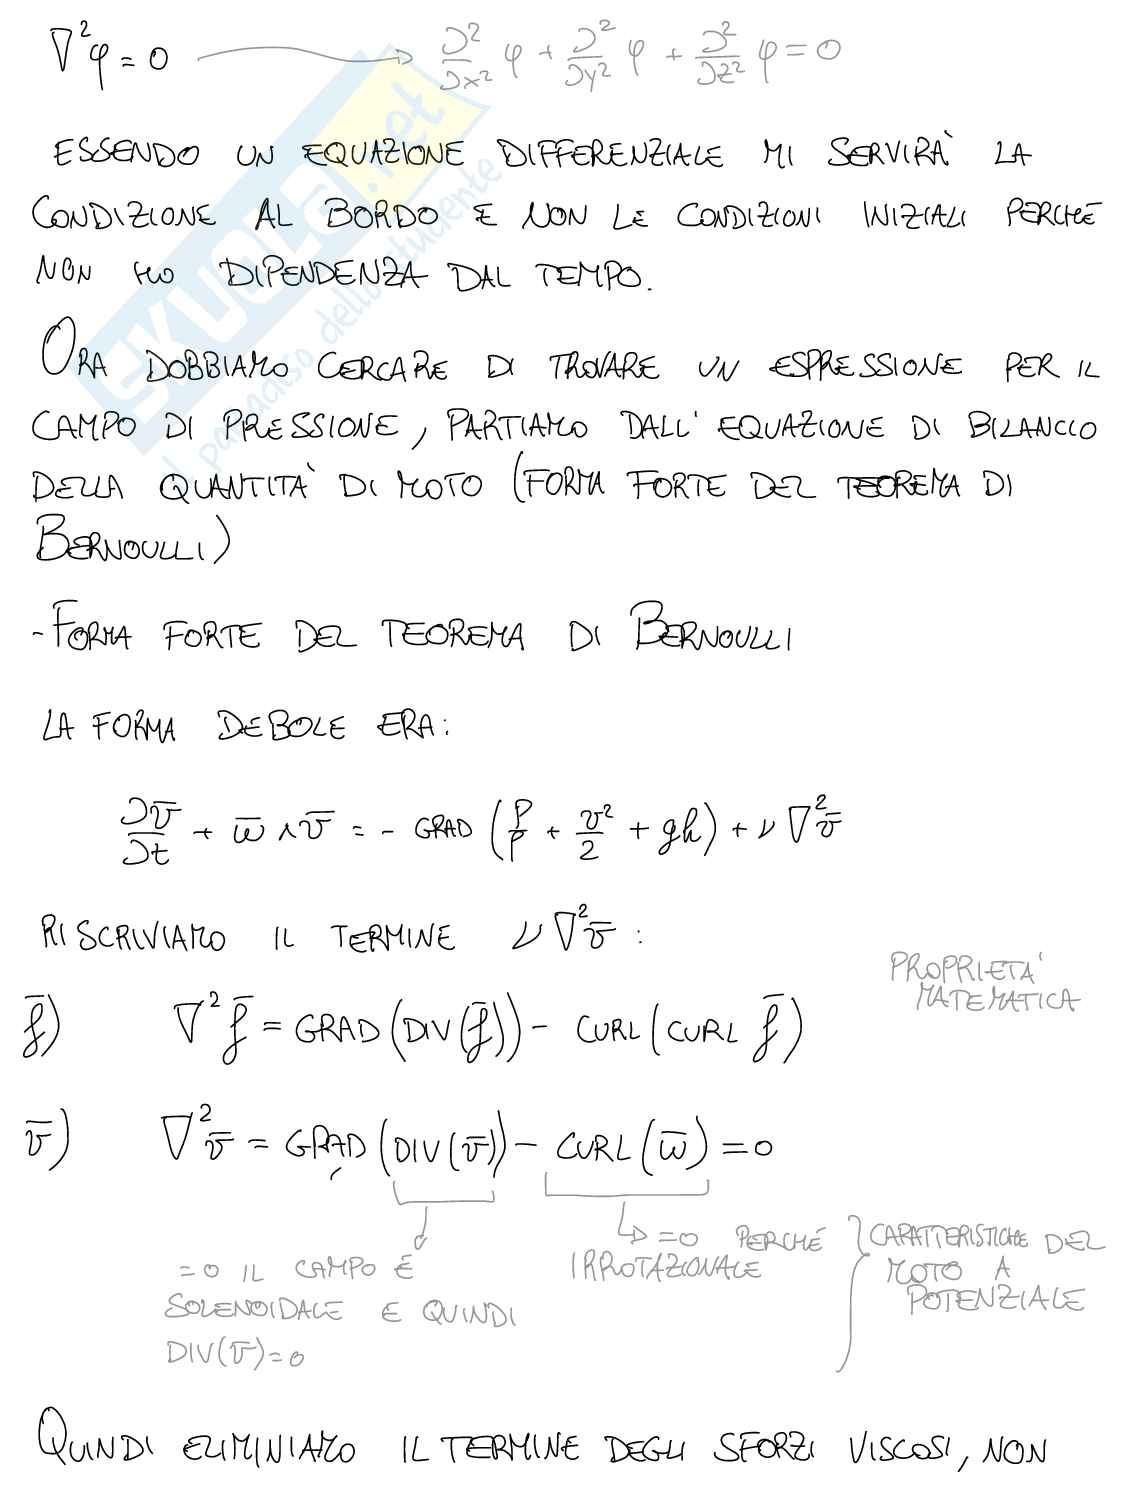 ∇²φ = 0 → ∂²/∂x² φ + ∂²/∂y² φ + ∂²/∂z² φ = 0
ESSENDO UN EQUAZIONE DIFFERENZIALE MI SERVIRÀ LA
CONDIZIONE AL BORDO E NON LE CONDIZIONI INIZIALI PERCHÉ
NON HO DIPENDENZA DAL TEMPO.
ORA DOBBIAMO CERCARE DI TROVARE UN ESPRESSIONE PER IL
CAMPO DI PRESSIONE, PARTIAMO DALL'EQUAZIONE DI BILANCIO
DELLA QUANTITÀ DI MOTO (FORMA FORTE DEL TEOREMA DI
BERNOULLI)
- FORMA FORTE DEL TEOREMA DI BERNOULLI
LA FORMA DEBOLE ERA:
∂v̅/∂t + w̅ ∧ v̅ = - GRAD (p/ρ + v²/2 + gh) + ν ∇²v̅
RISCRIVIAMO IL TERMINE ν ∇²v̅ :
PROPRIETA'
MATEMATICA
f̅) ∇²f̅ = GRAD (DIV(f̅)) - CURL (CURL f̅)
v̅) ∇²v̅ = GRAD (DIV(v̅)) - CURL (w̅) = 0
= 0 IL CAMPO È
SOLENOIDALE E QUINDI
DIV(v̅) = 0
↳ = 0 PERCHÉ
IRROTAZIONALE
CARATTERISTICHE DEL
MOTO A
POTENZIALE
QUINDI ELIMINIAMO IL TERMINE DEGLI SFORZI VISCOSI, NON
SKUOLA.net
il paradiso dello studente